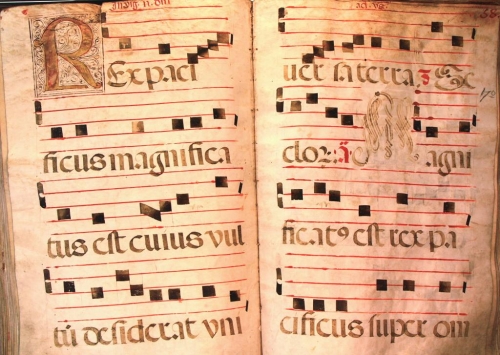 Rex paci
ficus magnifica
tus est cuius vul
tū desiderat vni
ad vs̄
uersa terra. ps
dlor: ā Magni
ficat9 est rex pa
cificus super om